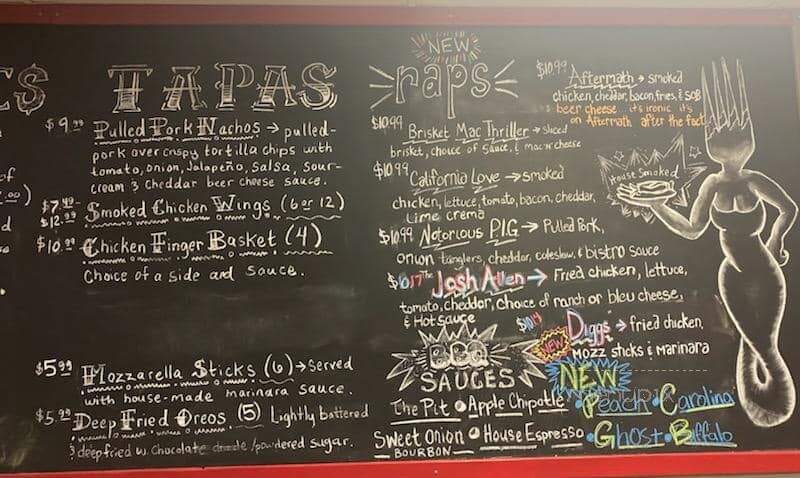 ES TAPAS
$9.99 Pulled Pork Nachos → pulled-
pork over crispy tortilla chips with
tomato, onion, Jalapeño, Salsa, Sour-
cream & cheddar beer cheese sauce.
$7.49-
$12.99 Smoked Chicken Wings (6 or 12)
$10.99 Chicken Finger Basket (4)
Choice of a side and sauce.
$5.99 Mozzarella Sticks (6) → Served
with house-made marinara sauce.
$5.99 Deep Fried Oreos (5) Lightly battered
& deepfried w. chocolate /powdered sugar.
of
.00)
d
NEW
raps
$10.99 Brisket Mac Thriller → sliced
brisket, choice of sauce, & mac n cheese
$10.99 California Love → smoked
chicken, lettuce, tomato, bacon, cheddar,
lime crema
$10.99 Notorious PIG → Pulled Pork,
onion tanglers, cheddar, coleslaw, & bistro sauce
$10.17 The Josh Allen → Fried chicken, lettuce,
tomato, cheddar, choice of ranch or bleu cheese,
& Hot sauce
$10.99 Aftermath → smoked
chicken, cheddar, bacon, fries, & SOB
beer cheese it's ironic it's
on Aftermath after the fact
House Smoked
$10.14 NEW Diggs → fried chicken,
Mozz sticks & marinara
BBQ
SAUCES
The Pit • Apple Chipotle
Sweet Onion • House Espresso
BOURBON
NEW
• Peach • Carolina
• Ghost • Buffalo